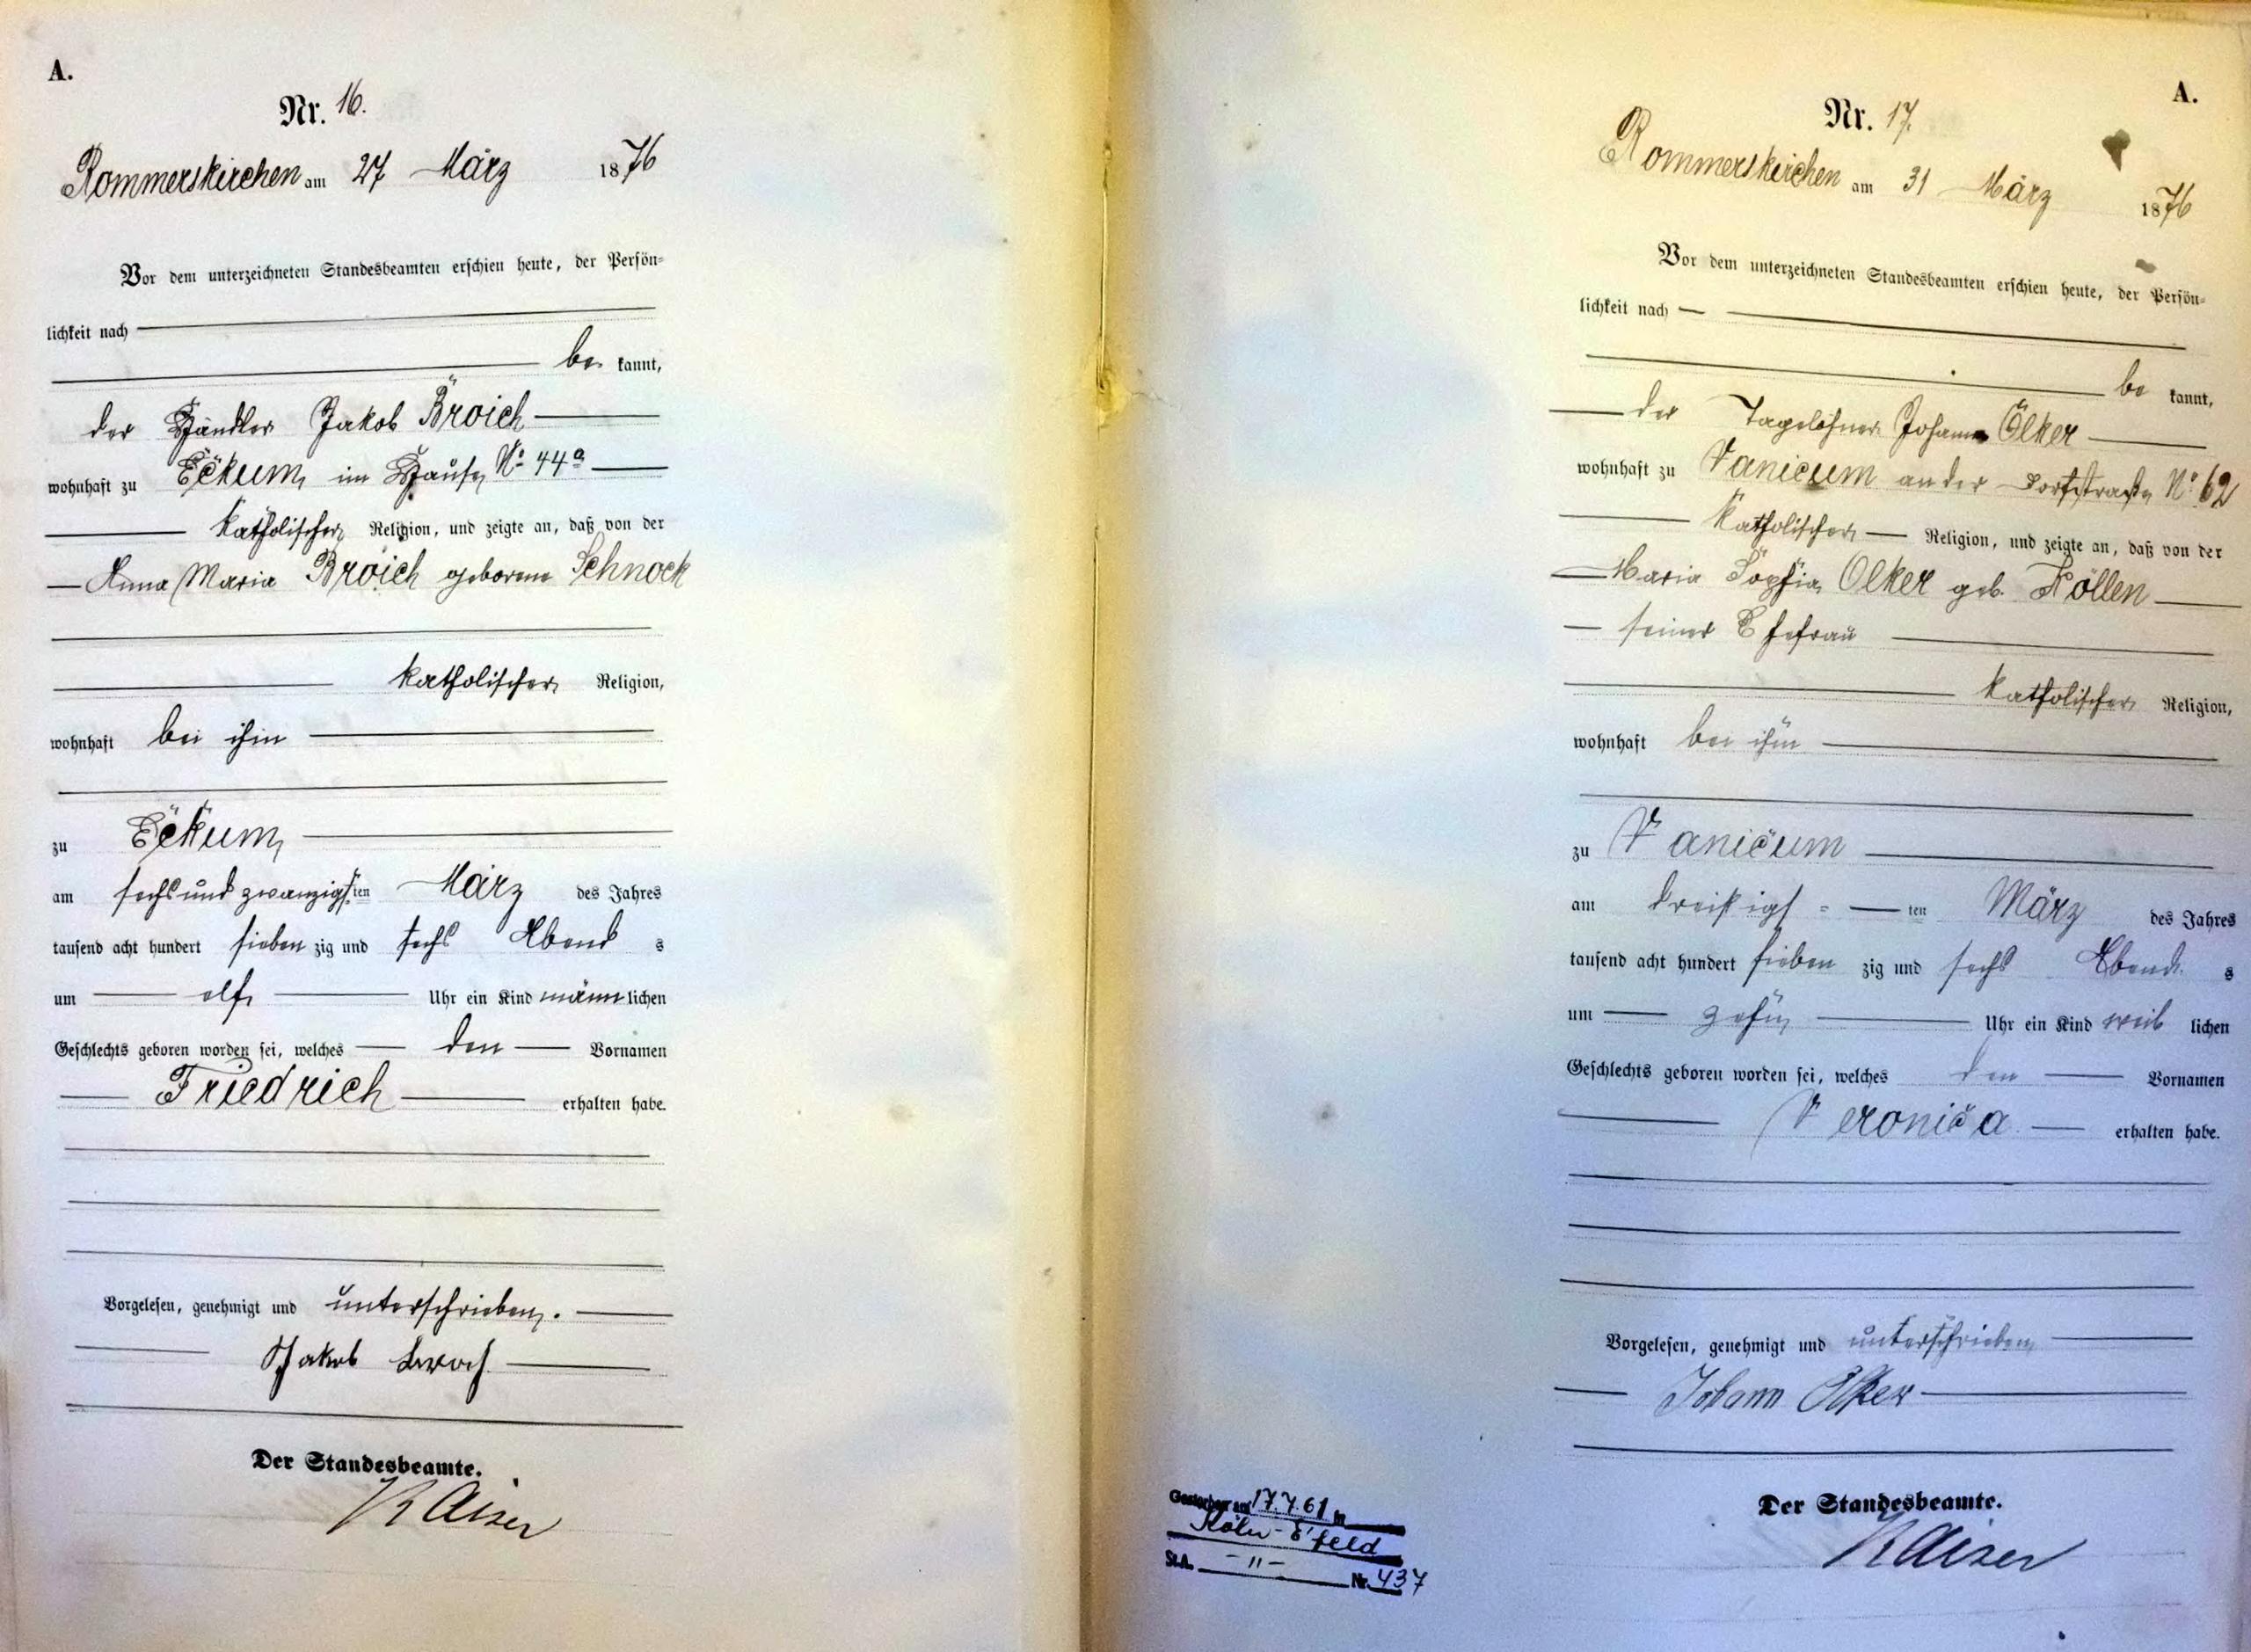 A.
Nr. 16.
Rommerskirchen am 27 März 1876
Vor dem unterzeichneten Standesbeamten erschien heute, der Persön-
lichkeit nach
be kannt,
der Händler Jakob Broich
wohnhaft zu Eckum, im Hause No 44a
katholischer Religion, und zeigte an, daß von der
Anna Maria Broich geborene Schnock
katholischer Religion,
wohnhaft bei ihm
zu Eckum,
am sechsundzwanzigsten März des Jahres
tausend acht hundert sieben zig und sechs Abend s
um elf Uhr ein Kind männ lichen
Geschlechts geboren worden sei, welches den Vornamen
Friedrich erhalten habe.
Vorgelesen, genehmigt und unterschrieben.
Jakob
Der Standesbeamte.
Kaiser
A.
Nr. 17.
Rommerskirchen am 31 März 1876
Vor dem unterzeichneten Standesbeamten erschien heute, der Persön-
lichkeit nach
be kannt,
der Tagelöhner Johann Ölker
wohnhaft zu Vanicum an der Dorfstraße No 62
katholischer Religion, und zeigte an, daß von der
Maria Sophia Olker geb.Köllen
seiner Ehefrau
katholischer Religion,
wohnhaft bei ihm
zu Vanicum
am dreißigst-ten März des Jahres
tausend acht hundert sieben zig und sechs Abend s
um zehn Uhr ein Kind weib lichen
Geschlechts geboren worden sei, welches den Vornamen
Veronica erhalten habe.
Vorgelesen, genehmigt und unterschrieben
Johann Ölker
Der Standesbeamte.
Kaiser
Gestorben am 17.7.61 in
Köln-E'feld
St.A. -"- Nr. 437